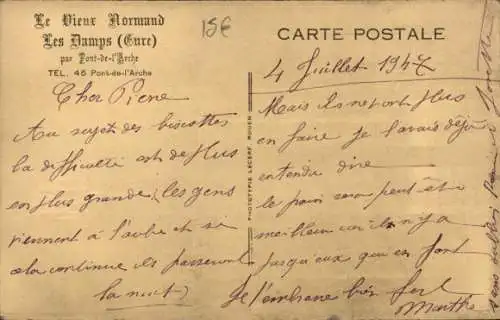 Le Vieux Normand
Les Damps (Eure)
par Pont-de-l'Arche
TEL. 45 Pont-de-l'Arche
15€
CARTE POSTALE
4 Juillet 1947
Cher Pierre
Au sujet des biscottes
la difficulté est de plus
en plus grande, les gens
viennent à l'aube et si
ça continue ils passeront
la nuit)
PHOTOTYPIE LECERF, ROUEN
Mais ils ne font plus
en faire je l'avais déjà
entendu dire
le pain sera peut être
meilleur car il n'y a
jusqu'à que en font
Je t'embrasse bien fort
Marthe